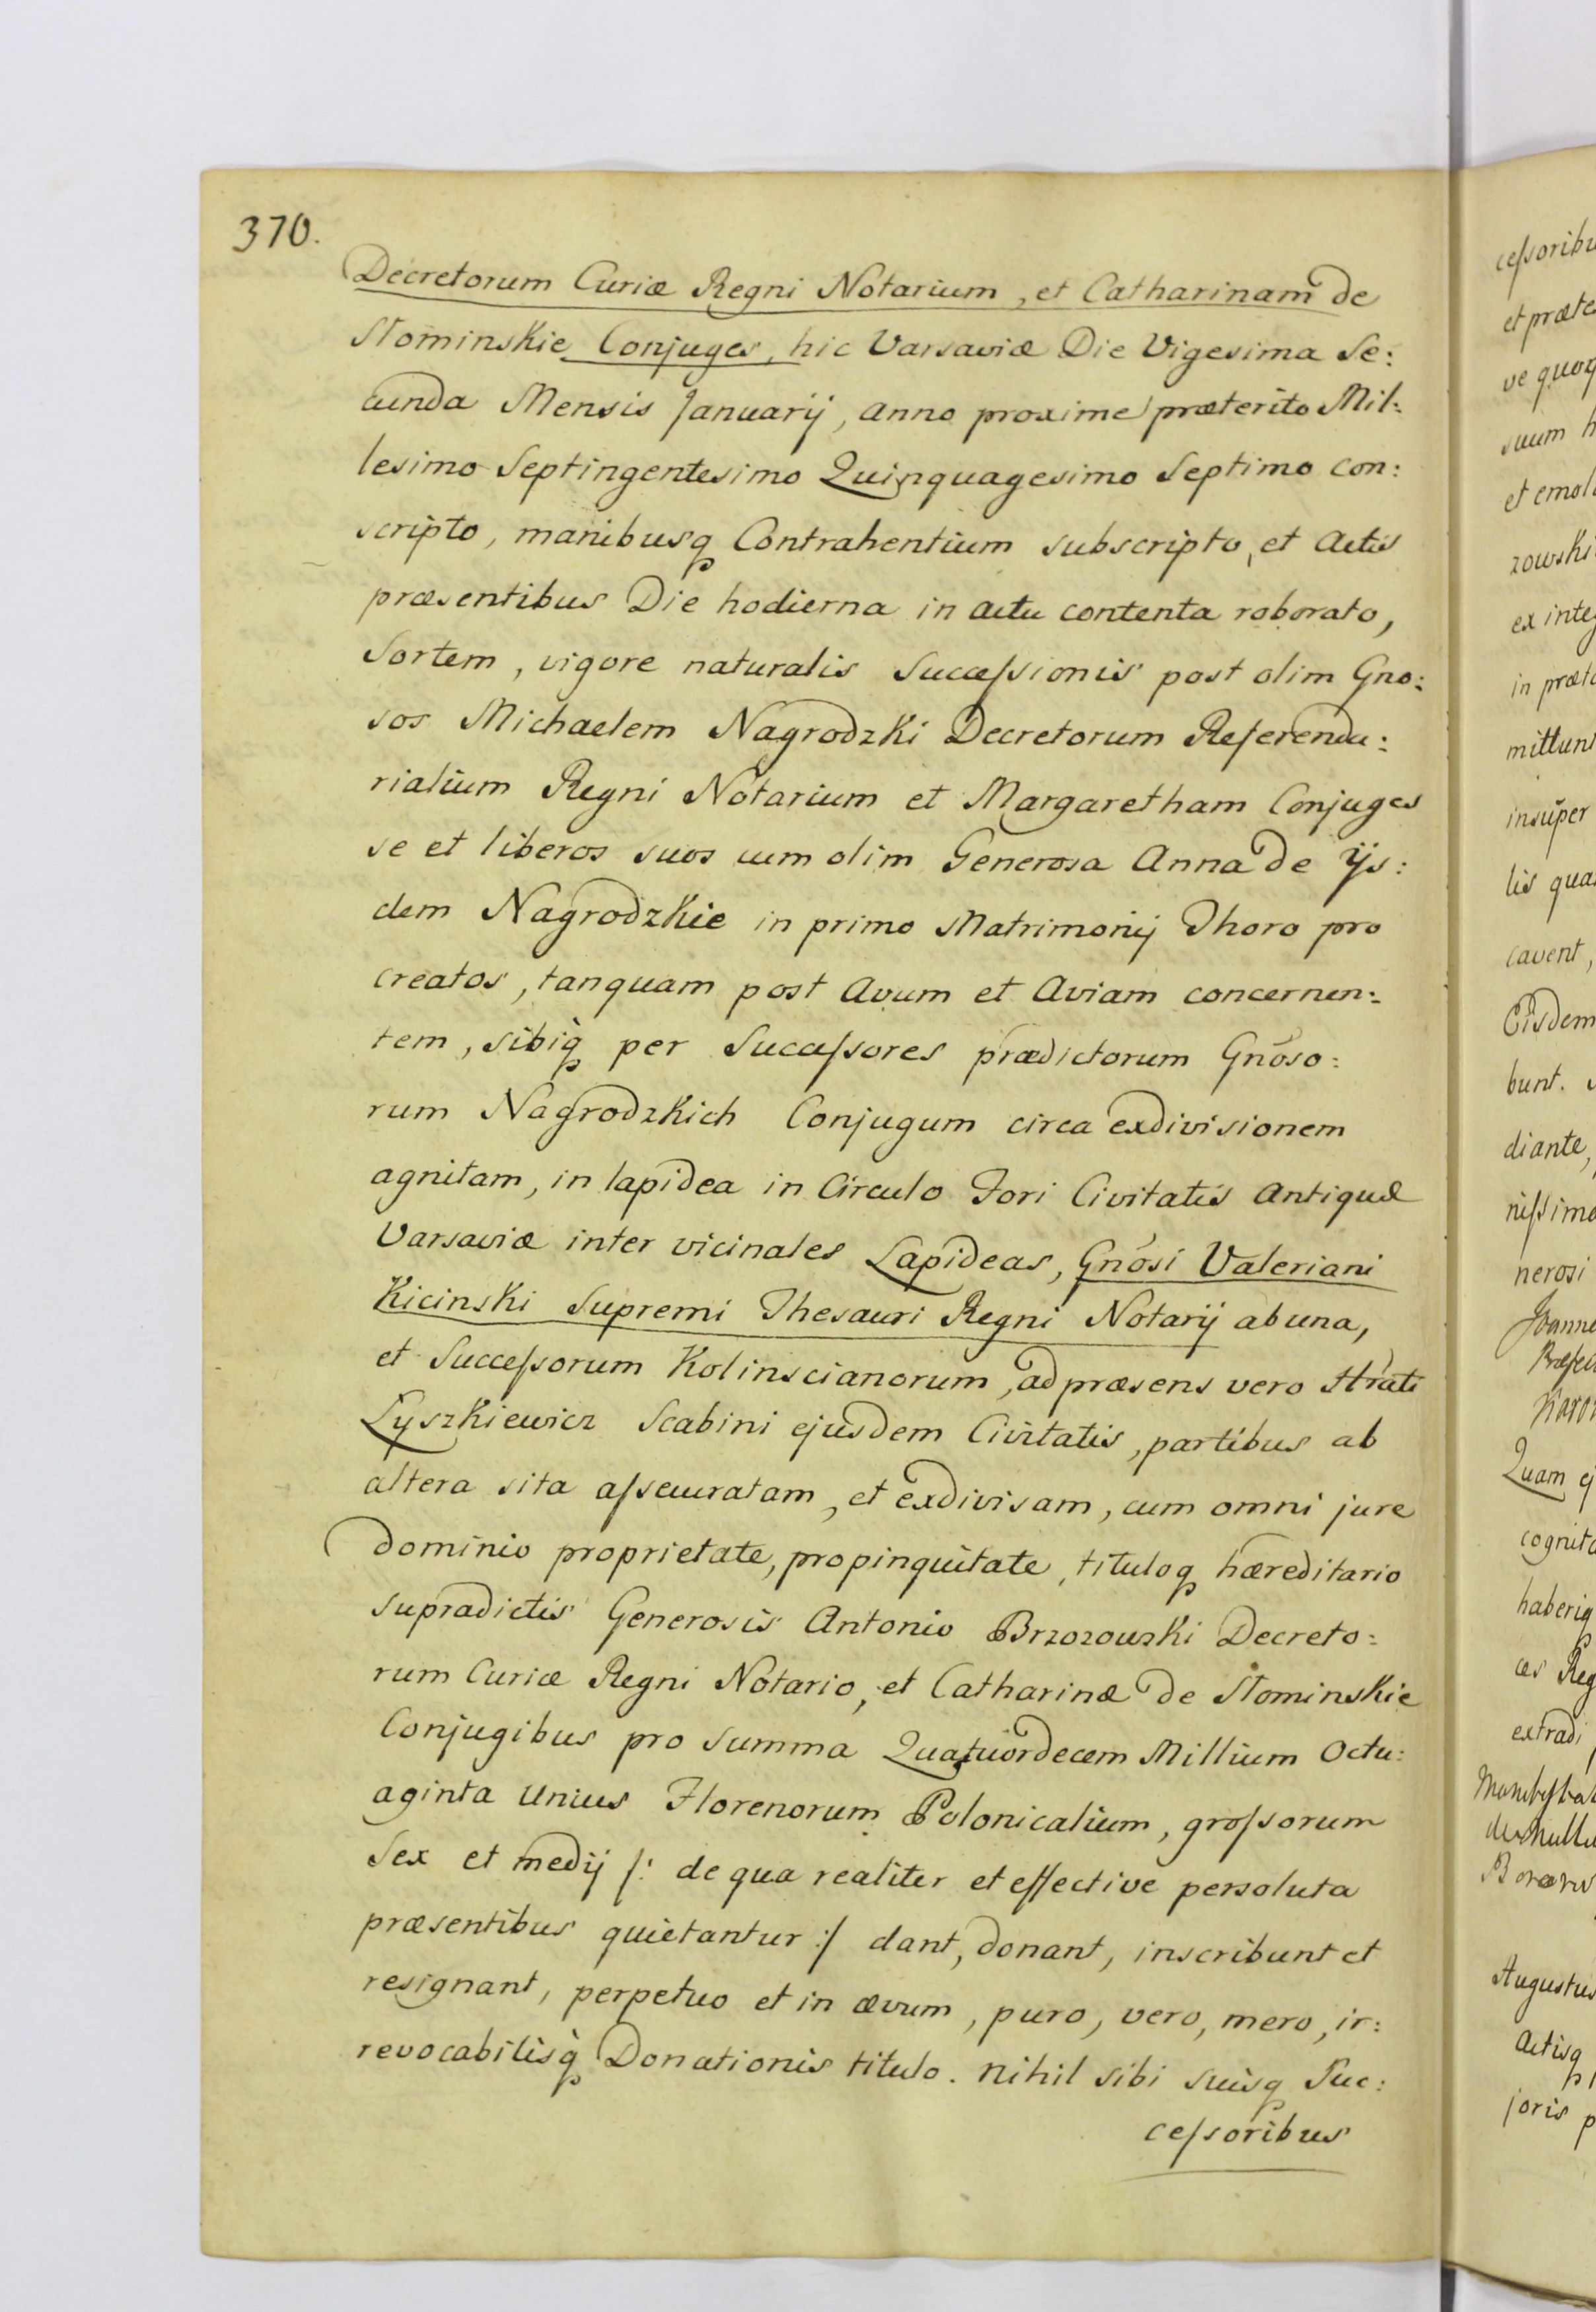 370.
Decretorum Curiæ Regni Notarium, et Catharinam de
Słominskie Conjuges, hic Varsaviæ Die Vigesima Se:
cunda Mensis Januarij, anno proxime præterito Mil:
lesimo Septingentesimo Quinquagesimo Septimo con:
scripto, manibusq Contrahentium subscripto, et Actis
præsentibus Die hodierna in actu contenta roborato,
Sortem, vigore naturalis Successionis post olim Gno:
sos Michaelem Nagrodzki Decretorum Referenda:
rialium Regni Notarium et Margaretham Conjuges
se et liberos suos cum olim Generosa Anna de ijs:
dem Nagrodzkie in primo Matrimonij Thoro pro
creatos, tanquam post Avum et Aviam concernen:
tem, sibiq per Successores prædictorum Gnoso:
rum Nagrodzkich Conjugum circa exdivisionem
agnitam, in lapidea in Circulo Fori Civitatis Antiquæ
Varsaviæ inter vicinales Lapideas, Gnosi Valeriani
Kicinski Supremi Thesauri Regni Notarij ab una,
et Successorum Kolinscianorum, ad præsens vero
Łyszkiewicz Scabini ejusdem Civitatis, partibus ab
altera sita assecuratam, et exdivisam, cum omni jure
dominio proprietate, propinquitate, tituloq hæreditario
supradictis Generosis Antonio Brzozowski Decreto:
rum Curiæ Regni Notario, et Catharinæ de Słominskie
Conjugibus pro summa Quatuordecem Millium Octu:
aginta Unius Florenorum Polonicalium, grossorum
Sex et medij /: de qua realiter et effective persoluta
præsentibus quietantur :/ dant, donant, inscribunt et
resignant, perpetuo et in ævum, puro, vero, mero, ir:
revocabilisq Donationis titulo. Nihil sibi suisq Suc:
cessoribus
et præte
ve quoq
suum h
zowski
mittunt
insuper
lis qua
cavent,
Eisdem
bunt.
diante,
nissimo
nerosi
Quam ej
haberiq
extradi
Augustus
Actisq
joris p